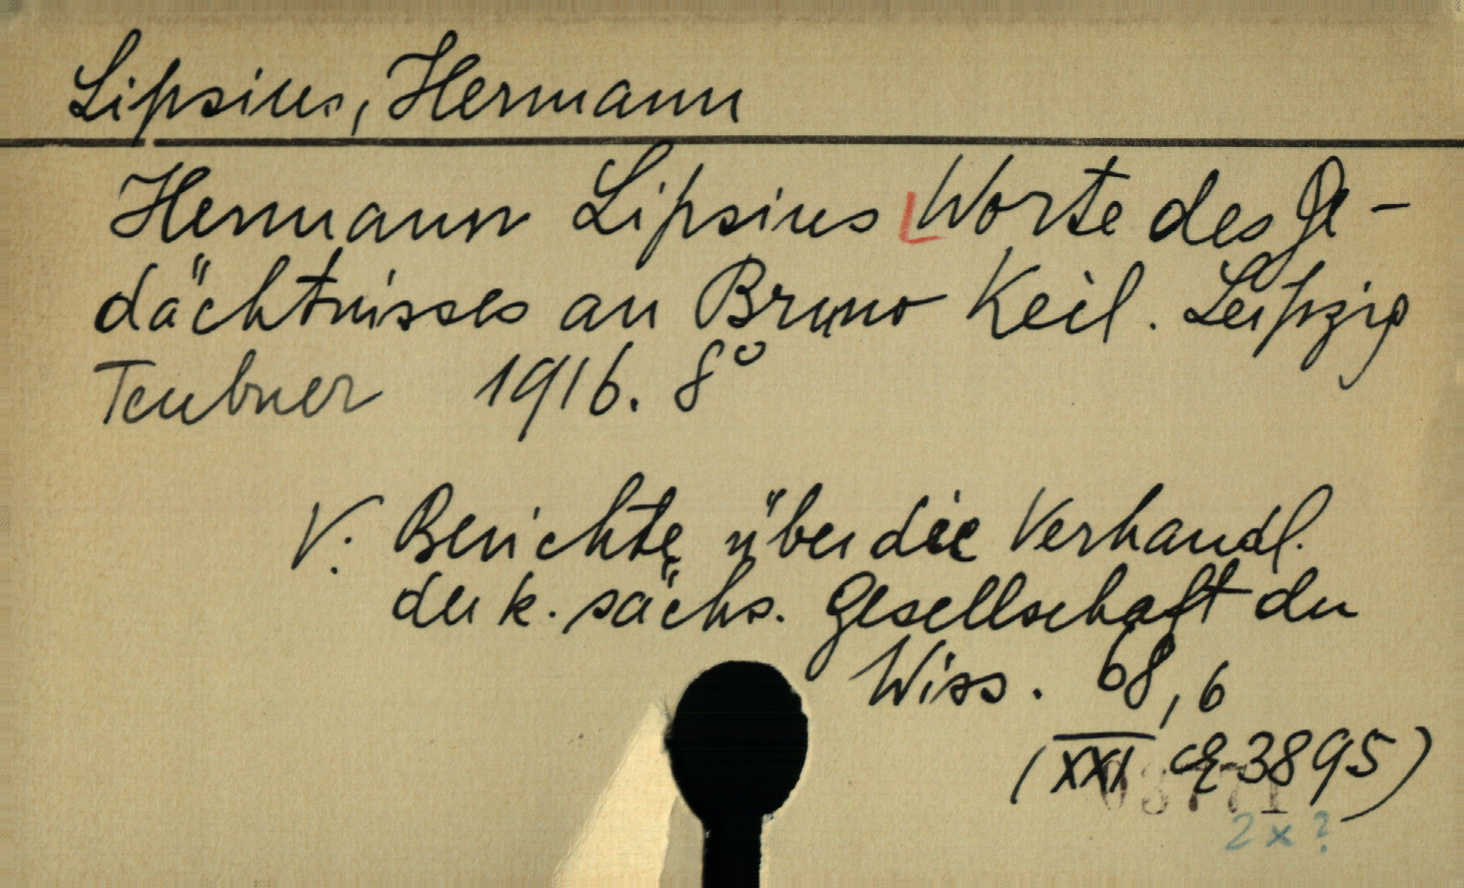 Lipsius, Hermann
Hermann Lipsius Worte des Ge-
dächtnisses an Bruno Keil. Leipzig
Teubner 1916. 8°
V. Berichte über die Verhandl.
der k. sächs. Gesellschaft der
Wiss. 68,6
(XXI 3895)
2x?